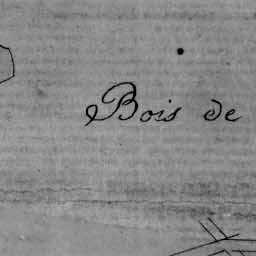 Bois de